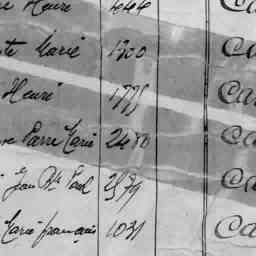 Henri 444 Ca
te Marie 1200 Ca
Henri 1775 Ca
re Pierre Marie 2480 Ca
Jean Bte Paul Ca
Marie françois 1031 Ca